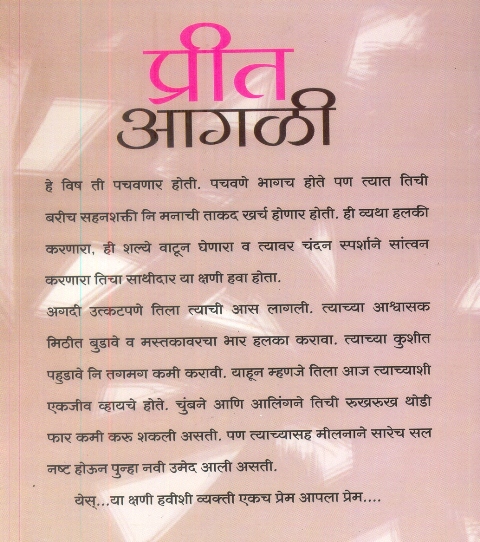 प्रीत
आगळी
हे विष ती पचवणार होती. पचवणे भागच होते पण त्यात तिची
बरीच सहनशक्ती नि मनाची ताकद खर्च होणार होती. ही व्यथा हलकी
करणारा, ही शल्ये वाटून घेणारा व त्यावर चंदन स्पर्शाने सांत्वन
करणारा तिचा साथीदार या क्षणी हवा होता.
अगदी उत्कटपणे तिला त्याची आस लागली. त्याच्या आश्वासक
मिठीत बुडावे व मस्तकावरचा भार हलका करावा. त्याच्या कुशीत
पहुडावे नि तगमग कमी करावी. याहून म्हणजे तिला आज त्याच्याशी
एकजीव व्हायचे होते. चुंबने आणि आलिंगने तिची रुखरुख थोडी
फार कमी करू शकली असती. पण त्याच्यासह मीलनाने सारेच सल
नष्ट होऊन पुन्हा नवी उमेद आली असती.
येस्...या क्षणी हवीशी व्यक्ती एकच प्रेम आपला प्रेम....